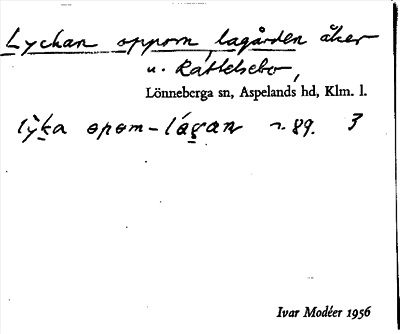 Lyckan oppom lagården åker
u. Råttelsebo,
Lönneberga sn, Aspelands hd, Klm. l.
lỳka opom-lágan r. 89. 3
Ivar Modéer 1956